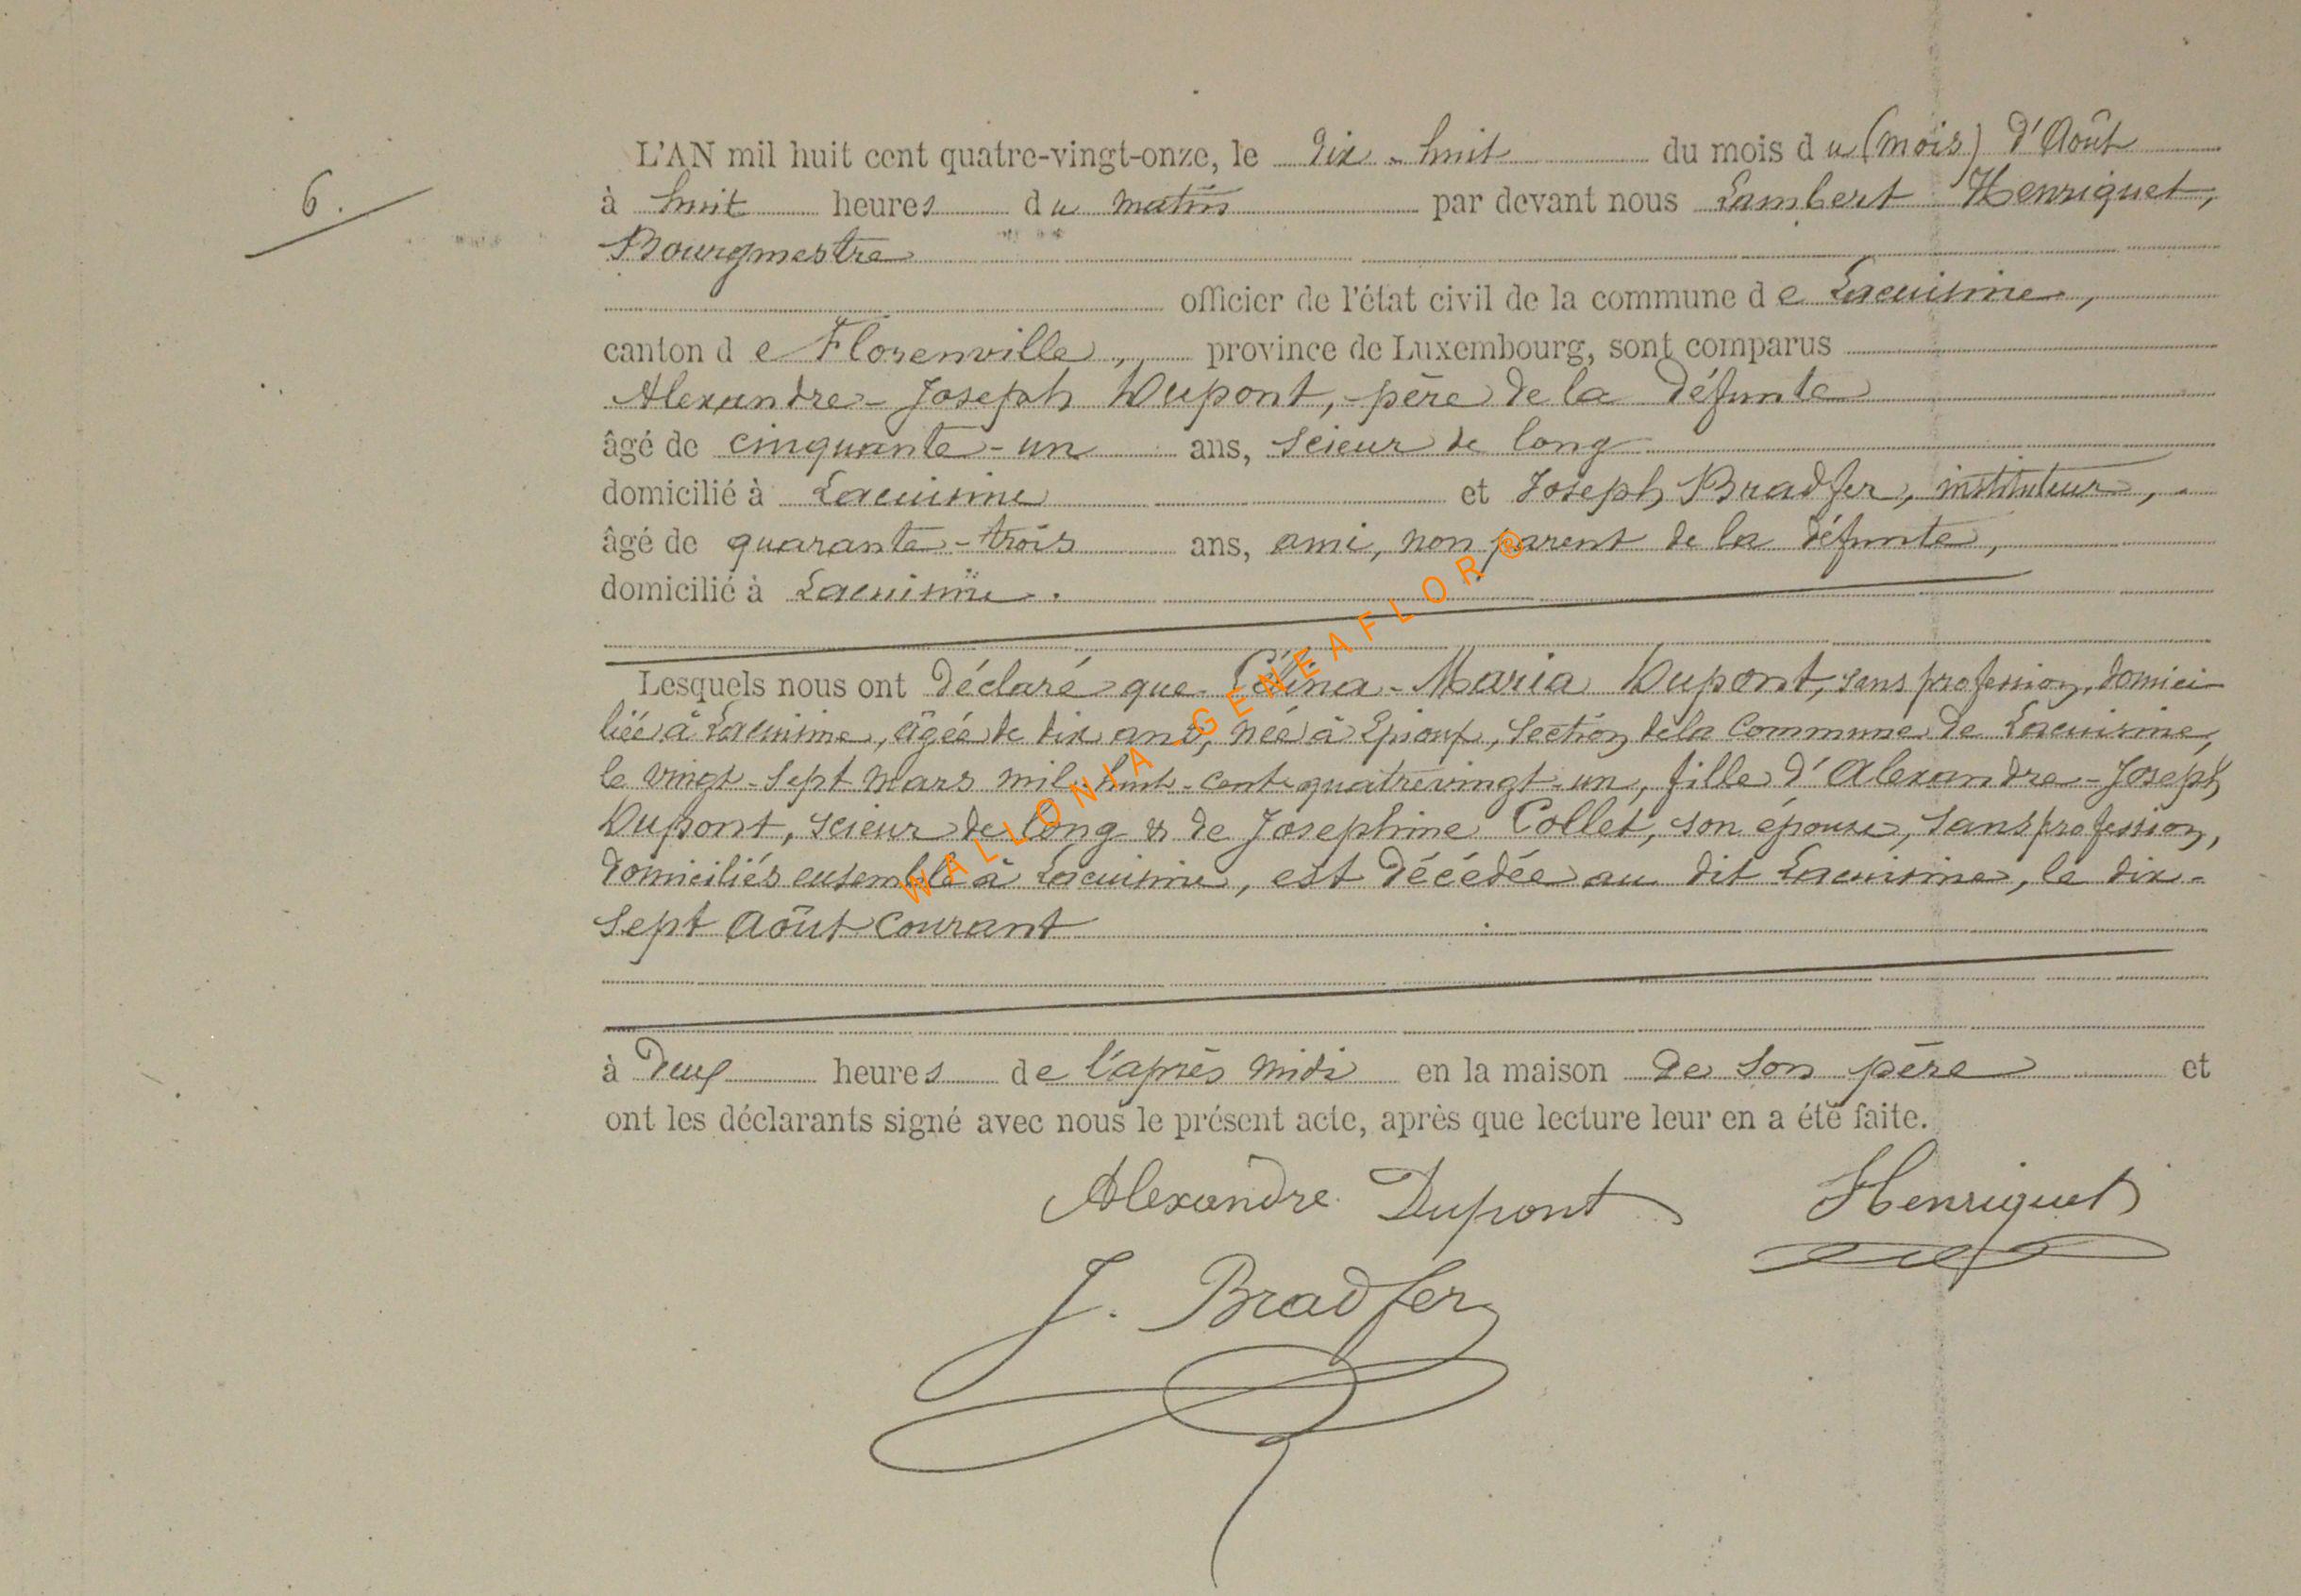 6.
L'AN mil huit cent quatre-vingt-onze, le dix-huit du mois du (mois) d'Août
à huit heures du matin par devant nous Lambert Henriquet,
Bourgmestre
officier de l'état civil de la commune de Lacuisine,
canton de Florenville, province de Luxembourg, sont comparus
Alexandre-Joseph Dupont, père de la défunte
âgé de cinquante-un ans, scieur de long
domicilié à Lacuisine et Joseph Bradfer, instituteur,
âgé de quarante-trois ans, ami, non parent de la défunte,
domicilié à Lacuisine.
Lesquels nous ont déclaré que Maria Dupont, sans profession, domici
liée à Lacuisine, âgée de dix ans, née à Epioux, Section de la Commune de Lacuisine,
le vingt-sept Mars mil-huit-cent quatre vingt-un, fille d'Alexandre-Joseph
Dupont, scieur de long & de Josephine Collet, son épouse, sans profession,
domiciliés ensemble à Lacuisine, est décédée au dit Lacuisine, le dix-
sept Août courant
à deux heures de l'après midi en la maison de son père et
ont les déclarants signé avec nous le présent acte, après que lecture leur en a été faite.
Alexandre Dupont Henriquet
J. Bradfer
WALLONIA - GENEAFLOR®